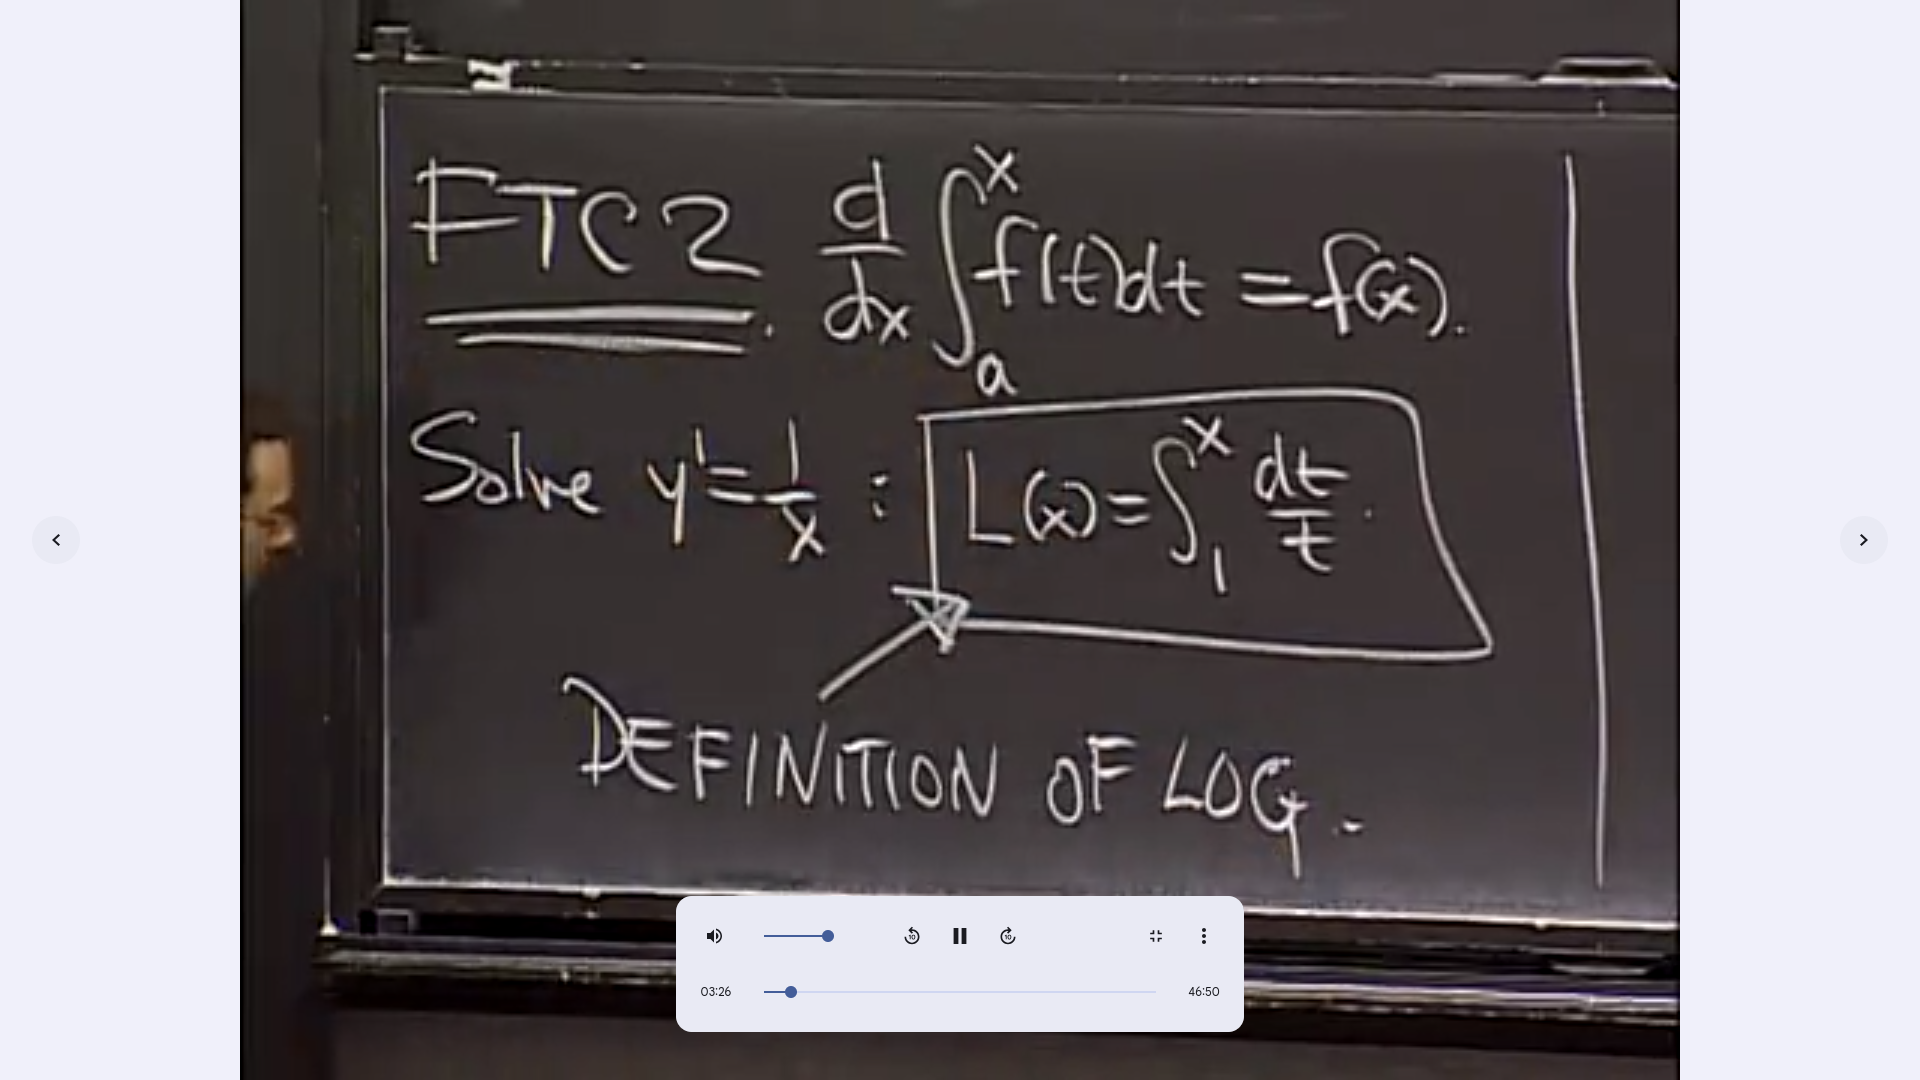 FTC2. d/dx ∫_a^x f(t)dt = f(x).
Solve y' = 1/x : L(x) = ∫_1^x dt/t.
DEFINITION OF LOG.
10 10
03:26 46:50